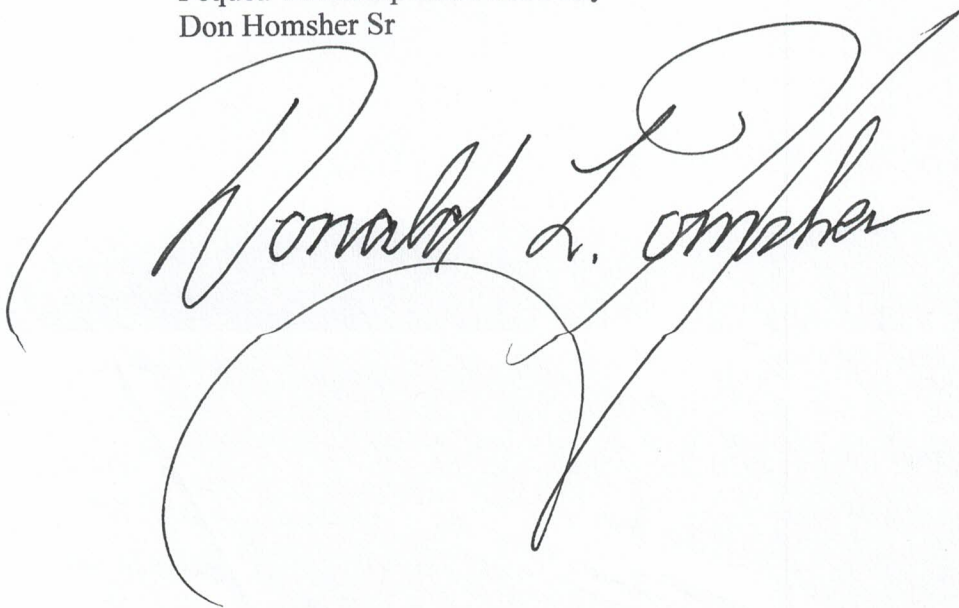 Don Homsher Sr
Donald L. Homsher